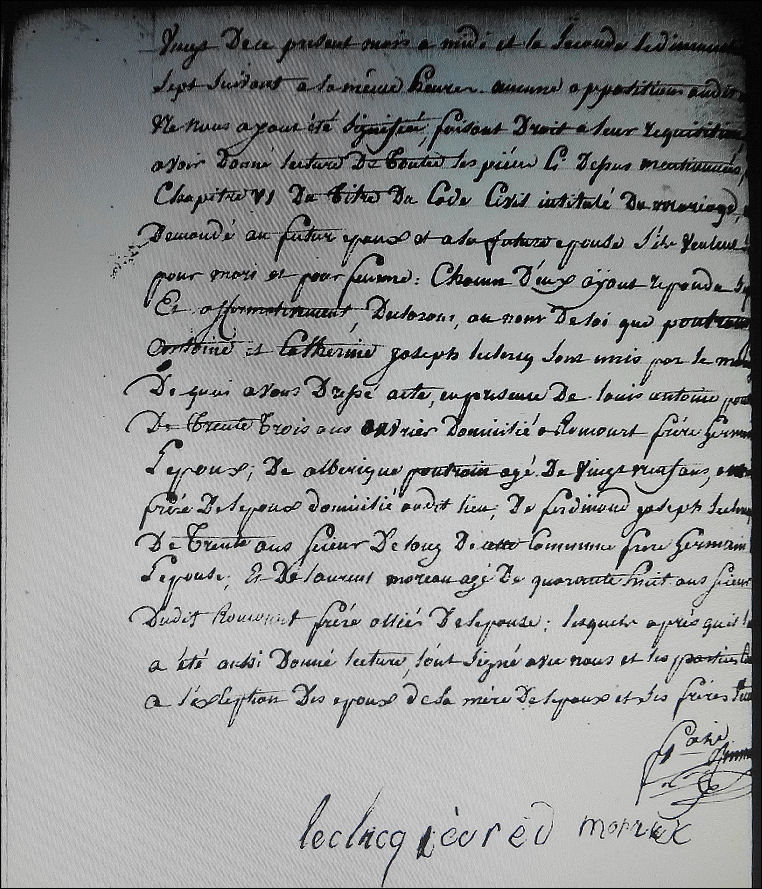 Vingt De ce présent mois a midi et la Seconde le dimanche
sept suivant a la même heure. aucune oppositions audit
Ne nous ayant été signifiée, faisant Droit a leur requisition
avoir Donné lecture De toutes les pièces Ci Dessus mentionnées,
Chapitre VI Du titre Du Code Civil intitulé Du mariage,
Demandé au futur epoux et a la future epouse s'ils veulent
pour mari et pour femme: Chacun D'eux ayant repondu
Et affirmativement, Declarons, au nom De loi que poutrain
Antoine et Catherine joseph leclercq sont unis par le
De quoi avons Dressé acte, en presence De louis antoine
De trente trois ans ouvrier Domicilié a Romourt frère Germain
L'epoux; De alberique poutrain agé De vingt neuf ans,
frère De l'epoux domicilié audit lieu, De ferdinand joseph
De trente ans scieur De long De cette Commune frère Germain
L'epouse; Et De laurent moreau agé De quarante huit ans scieur
Dudit Romourt frère alliés De l'epouse; lesquels après qu'il
a été aussi Donné lecture, l'ont signé avec nous et les parties
a l'exseption Des epoux de la mère De l'epoux et les frères
leclercq